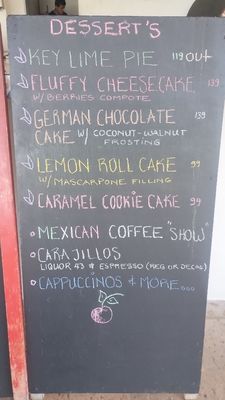 DESSERT'S
KEY LIME PIE 119 out
FLUFFY CHEESECAKE 139
W/ BERRIES COMPOTE
GERMAN CHOCOLATE 139
CAKE W/ COCONUT-WALNUT
FROSTING
LEMON ROLL CAKE 99
W/ MASCARPONE FILLING
CARAMEL COOKIE CAKE 99
MEXICAN COFFEE "SHOW"
CARAJILLOS
LIQUOR 43 & ESPRESSO (REG OR DECAF)
CAPPUCINOS & MORE...